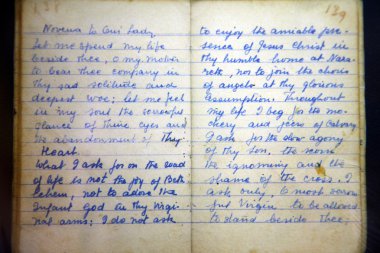 138
Novena to Our Lady
Let me spend my life
beside thee, O my mother
to bear thee company in
thy sad solitude and
deepest woe; let me feel
in my soul the sorrowful
glance of Thine eyes and
the abandonment of Thy
Heart.
What I ask for on the road
of life is not the joy of Beth
lehem; not to adore the
Infant God in thy Virgi-
nal arms; I do not ask
139
to enjoy the amiable pre-
sence of Jesus Christ in
thy humble home at Naza-
reth, nor to join the choirs
of angels at thy glorious
assumption. Throughout
my life I beg for the mo-
ckery and jeers of Calvary
I ask for the slow agony
of thy Son, the scorn
the ignominy and the
shame of the cross. I
ask only, O most sorrow
ful Virgin to be allowed
to stand beside thee;